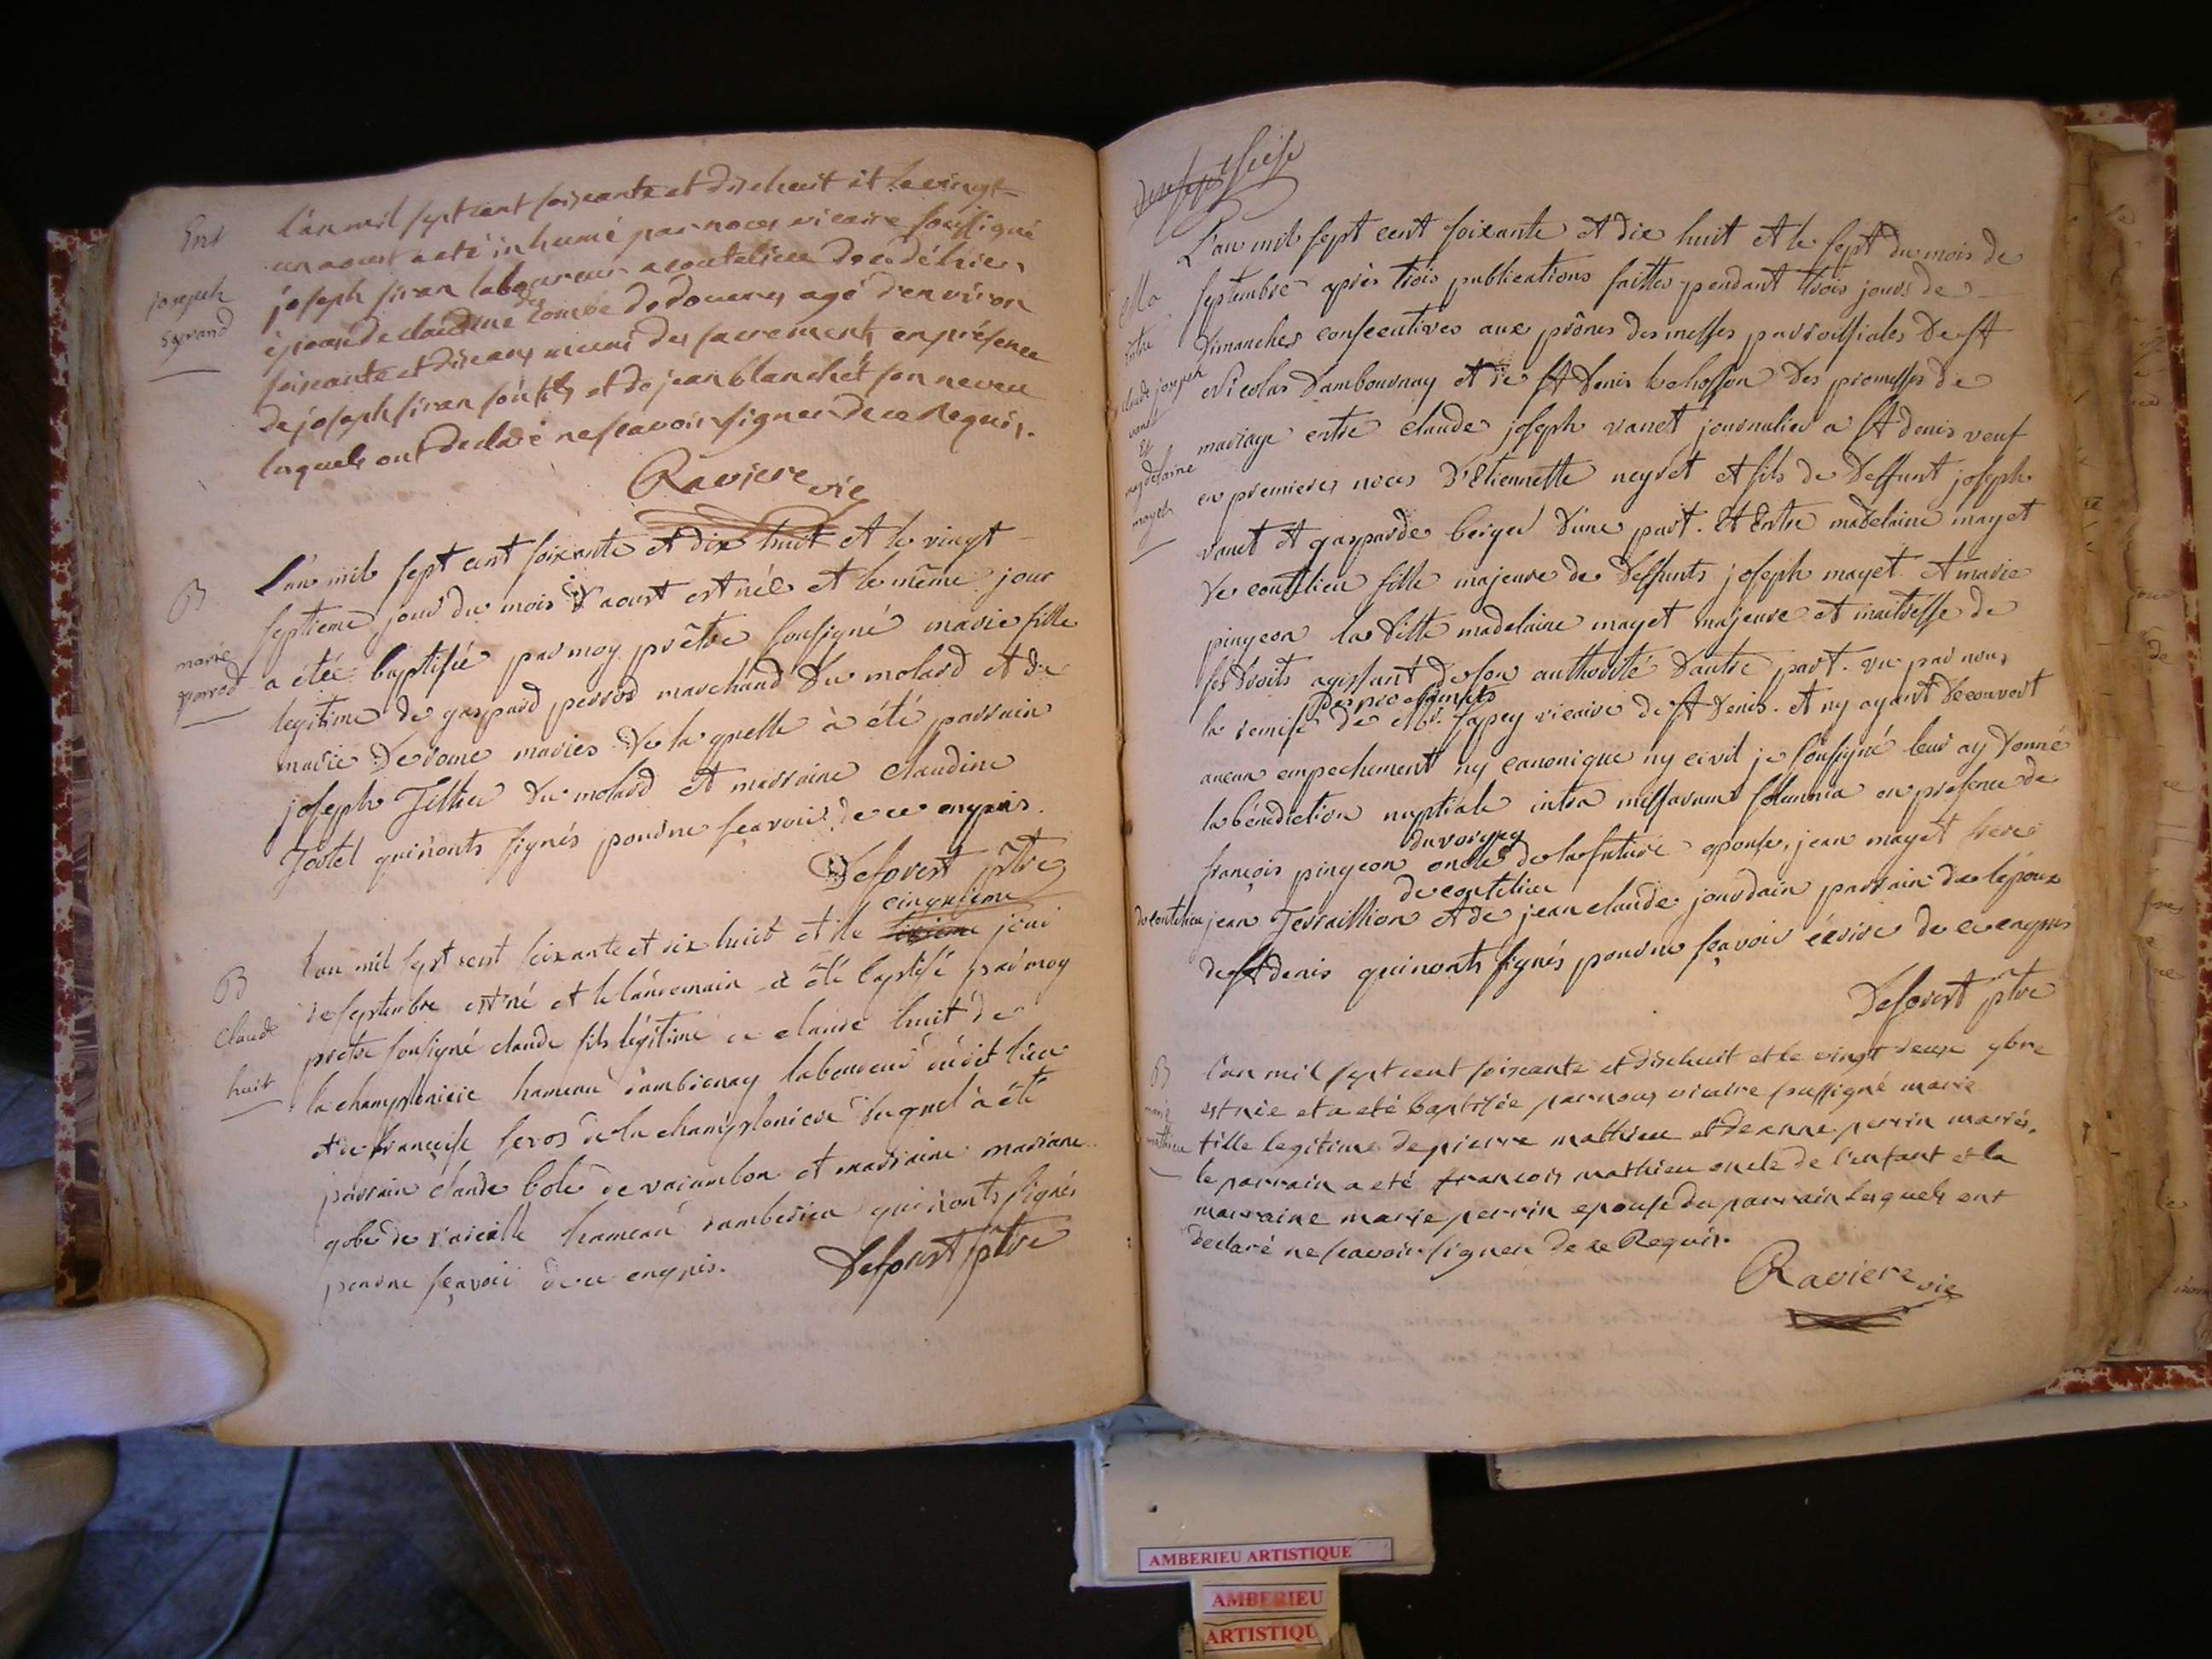 Ent
joseph
L'an mil sept cent soixante et dix huit et le vingt
un aoust a eté inhumé par nous vicaire soussigné
joseph siran laboureur a contelieu decédé hier,
époux de claudine combe de douvres agé d'environ
soixante et dix ans muni des sacrements en présence
de joseph siran son fils et de jean blanchet son neveu
lesquels ont declaré ne scavoir signer de ce Requis.
Raviere vic
B
marie
perrod
L'an mil sept cent soixante et dix huit et le vingt
septieme jour du mois d'aoust est née et le même jour
a étée baptisée par moy prêtre sousigné marie fille
legitime de gaspard perrod marchand du molard et de
marie derome mariés de la quelle à été parrain
joseph Tillier du molard et marraine claudine
qui n'onts signés pour ne sçavoir de ce enquis.
Deforest ptre
B
Claude
huit
cinquieme
L'an mil sept cent soixante et dix huit et le jour
de septembre est né et le landemain a été baptisé par moy
pretre sousigné claude fils légitime de claude huit de
la championiere hameau d'ambronay laboureur audit lieu
et de françoise de la championiere duquel à été
parrain claude bole de vaiambon et marraine mariane
gobe de hameau qui n'onts signés
pour ne sçavoir de ce enquis.
Deforest ptre
seise
Ma
entre
claude joseph
vanet
Et
magdelaine
mayet
L'an mil sept cent soixante et dix huit et le sept du mois de
septembre après trois publications faittes pendant trois jours de
Dimanches consecutives aux prônes des messes parroissiales de st
Nicolas d'ambournay et de st denis le chosson des promesses de
mariage entre claude joseph vanet journalier a st denis veuf
en premieres noces d'Etiennette neyret et fils de deffunt joseph
vanet et gasparde berger d'une part. Et Entre madelaine mayet
de contelieu fille majeure de deffunts joseph mayet et marie
pingeon la ditte madelaine mayet majeure et maitresse de
ses droits agissant de son authorité d'autre part. vu par nous
la remise de Mr. sapey vicaire de st denis. et ny ayant decouvert
aucun empechement ny canonique ny civil je sousigné leur ay donné
la bénediction nuptiale intra missarum solemnia en presence de
françois pingeon oncle de la future epouse, jean mayet frere
de contelieu
de contelieu jean Terraillion et de jean claude jourdain parrain de l'époux
de st denis qui n'onts signés pour ne sçavoir écrire de ce enquis
Deforest ptre
B
marie
mathieu
L'an mil sept cent soixante et dix huit et le vingt deux 9bre
est née et a eté baptisée par nous vicaire soussigné marie
fille legitime de pierre mathieu et de anne perrin mariés,
le parrain a eté francois mathieu oncle de l'enfant et la
marraine marie perrin epouse du parrain lesquels ont
declaré ne scavoir signer de ce Requis.
Raviere vic
AMBERIEU ARTISTIQUE
AMBERIEU
ARTISTIQU